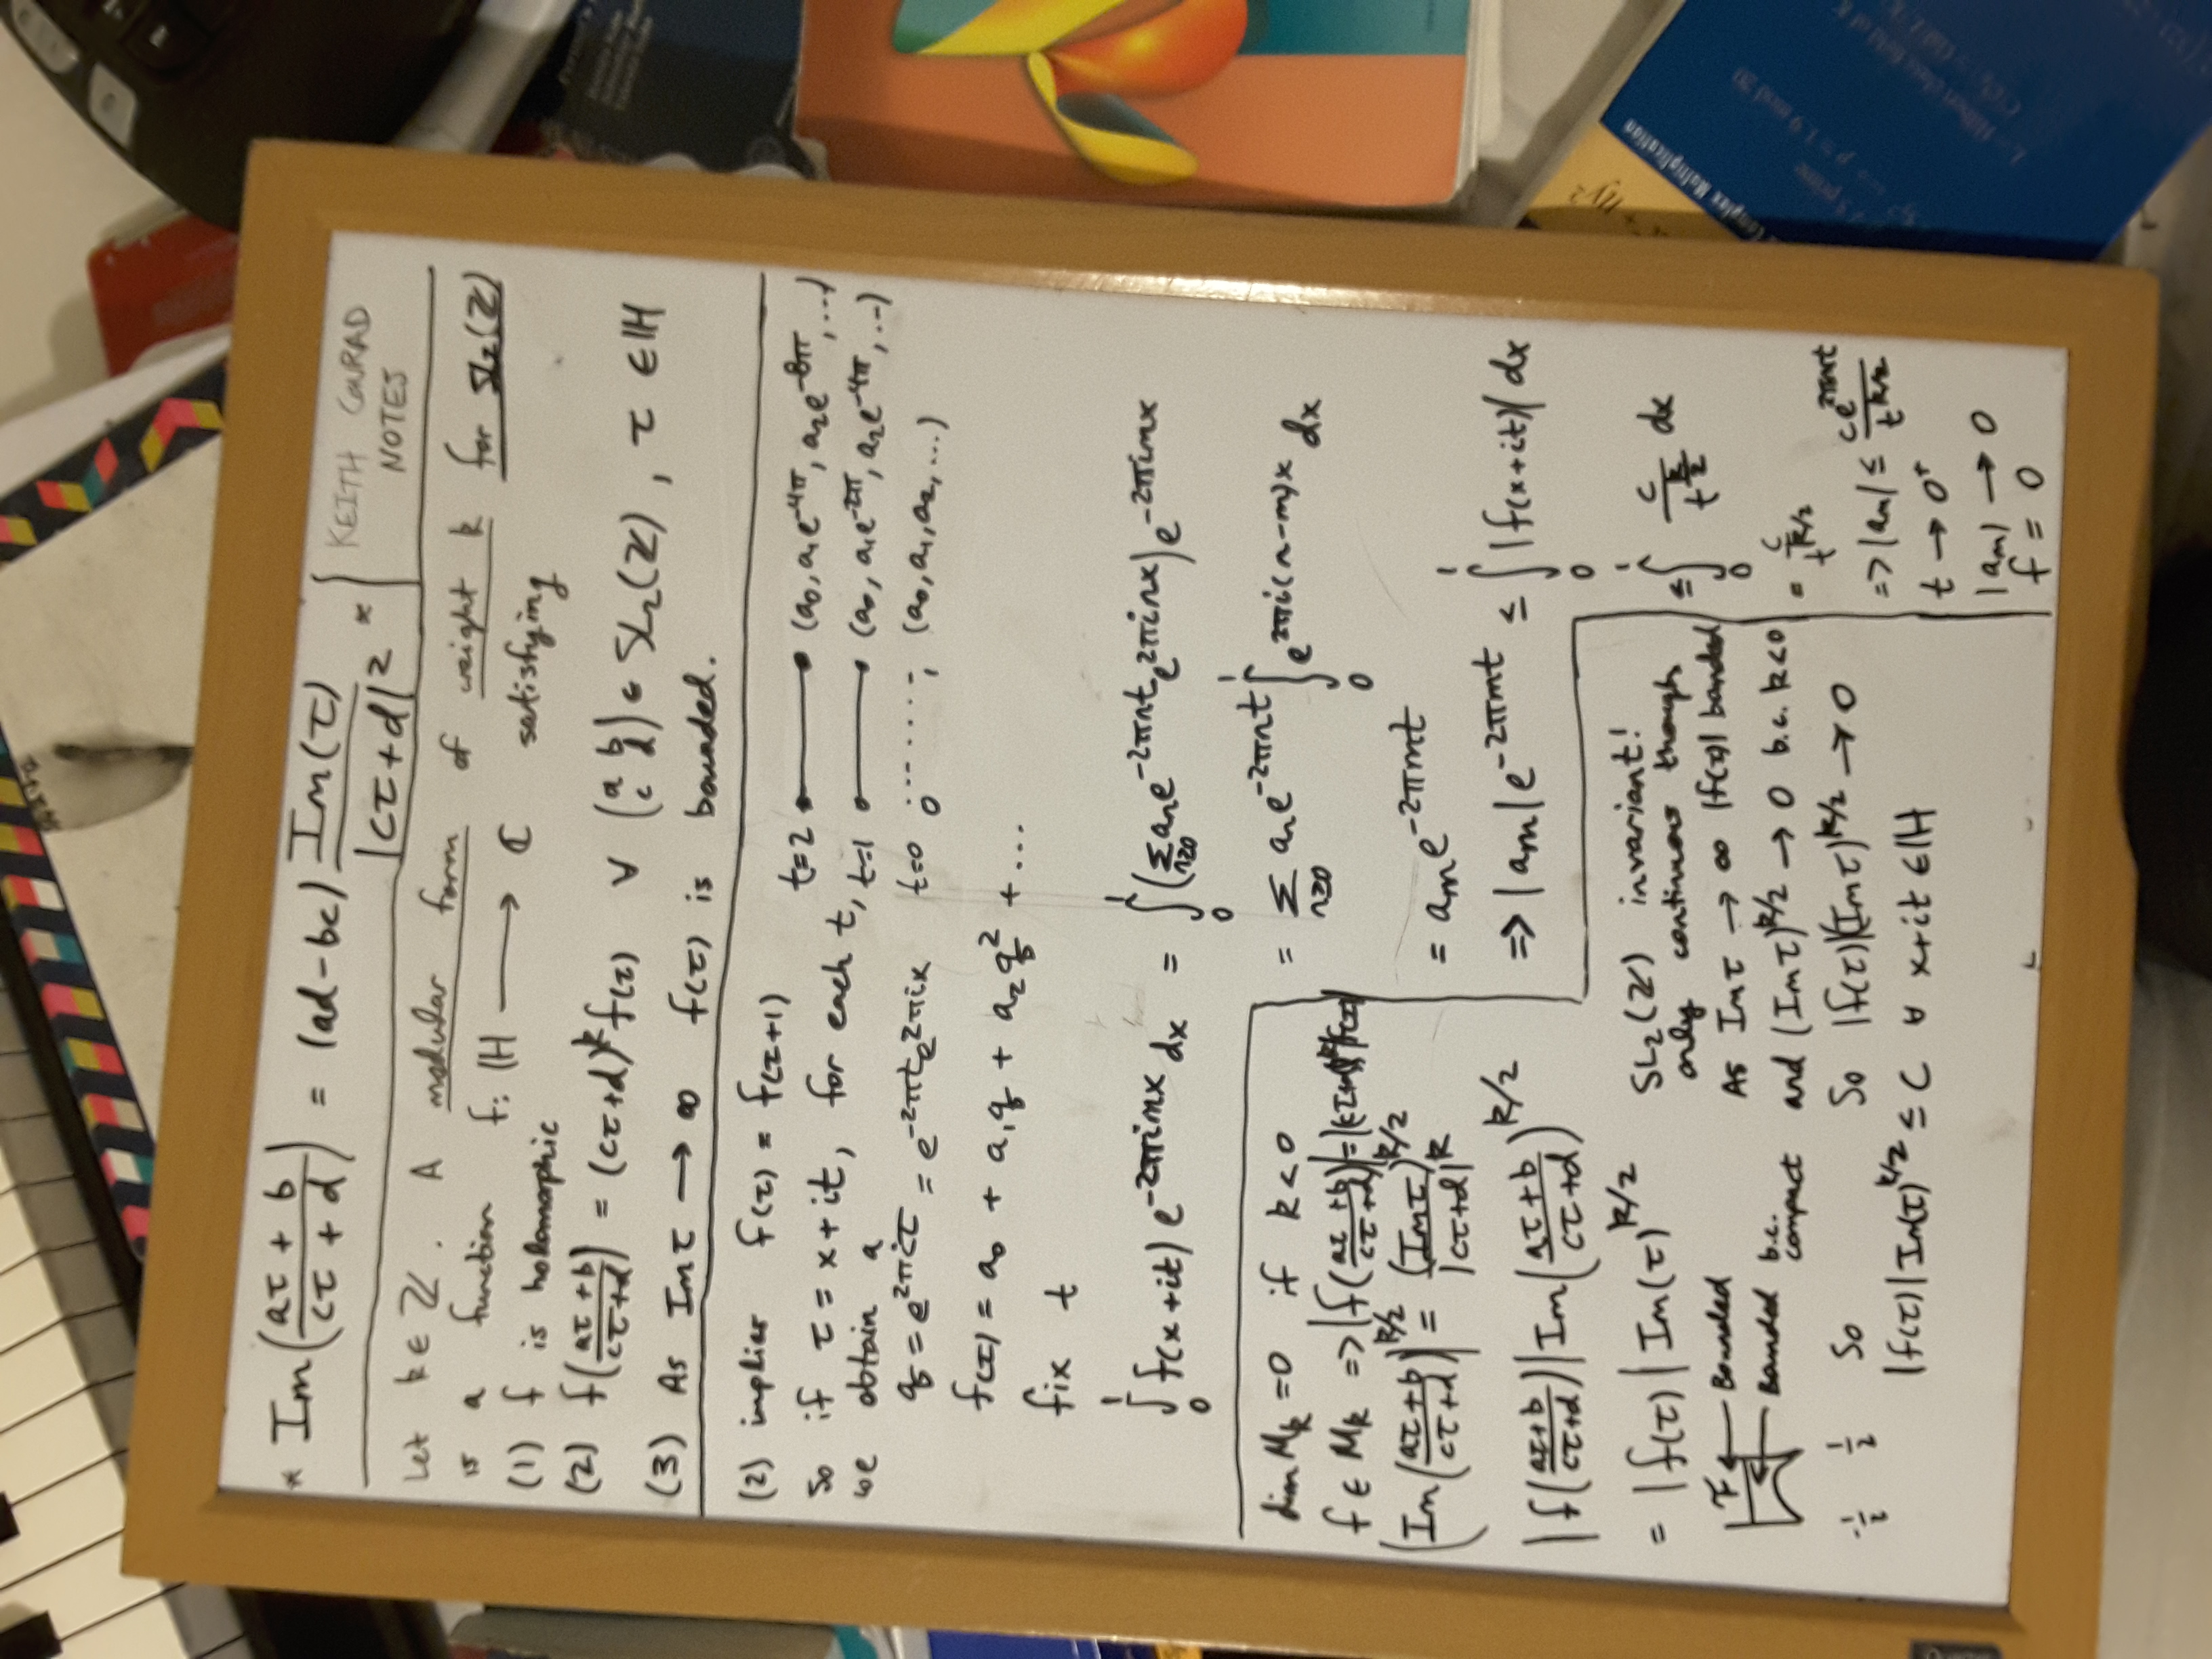 * Im(aτ + b / cτ + d) = (ad - bc) Im(τ) / |cτ + d|² *
KEITH CONRAD
NOTES
Let k ∈ ℤ. A modular form of weight k for SL₂(ℤ)
is a function f: ℍ ⟶ ℂ satisfying
(1) f is holomorphic
(2) f(aτ + b / cτ + d) = (cτ + d)^k f(τ) ∀ (a b / c d) ∈ SL₂(ℤ), τ ∈ ℍ
(3) As Im τ ⟶ ∞ f(τ) is bounded.
(2) implies f(τ) = f(τ+1)
So if τ = x + it, for each t,
we obtain a
q = e^{2πiτ} = e^{-2πt} e^{2πix}
t=2 (a₀, a₁e^{-4π}, a₂e^{-8π}, ...)
t=1 (a₀, a₁e^{-2π}, a₂e^{-4π}, ...)
t=0 0 1 (a₀, a₁, a₂, ...)
f(τ) = a₀ + a₁q + a₂q² + ...
fix t
∫₀¹ f(x+it) e^{-2πimx} dx = ∫₀¹ (∑_{n≥0} aₙe^{-2πnt} e^{2πinx}) e^{-2πimx}
= ∑_{n≥0} aₙe^{-2πnt} ∫₀¹ e^{2πi(n-m)x} dx
= aₘe^{-2πmt}
=> |aₘ|e^{-2πmt} ≤ ∫₀¹ |f(x+it)| dx
≤ ∫₀¹ c / t^{k/2} dx
= c / t^{k/2}
=> |aₘ| ≤ ce^{2πmt} / t^{k/2}
t → 0⁺
|aₘ| → 0
f = 0
dim M_k = 0 if k < 0
f ∈ M_k => |f(aτ + b / cτ + d)| = |(cτ+d)|^k |f(τ)|
(Im(aτ + b / cτ + d))^{k/2} = (Im τ)^{k/2} / |cτ+d|^k
|f(aτ+b / cτ+d)| Im(aτ+b / cτ+d)^{k/2}
= |f(τ)| Im(τ)^{k/2}
SL₂(ℤ) invariant!
only continuous though
F ← Bounded
← Bounded b.c. compact
-1/2 1/2
As Im τ → ∞ |f(τ)| bounded
and (Im τ)^{k/2} → 0 b.c. k<0
So So |f(τ)|(Im τ)^{k/2} → 0
|f(τ)| Im(τ)^{k/2} ≤ C ∀ x+it ∈ ℍ
Complex Multiplication